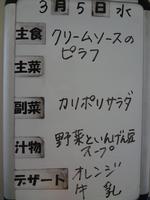 3月5日 水
主食 クリームソースの
ピラフ
主菜
副菜 カリポリサラダ
汁物 野菜といんげん豆
スープ
デザート オレンジ
牛乳